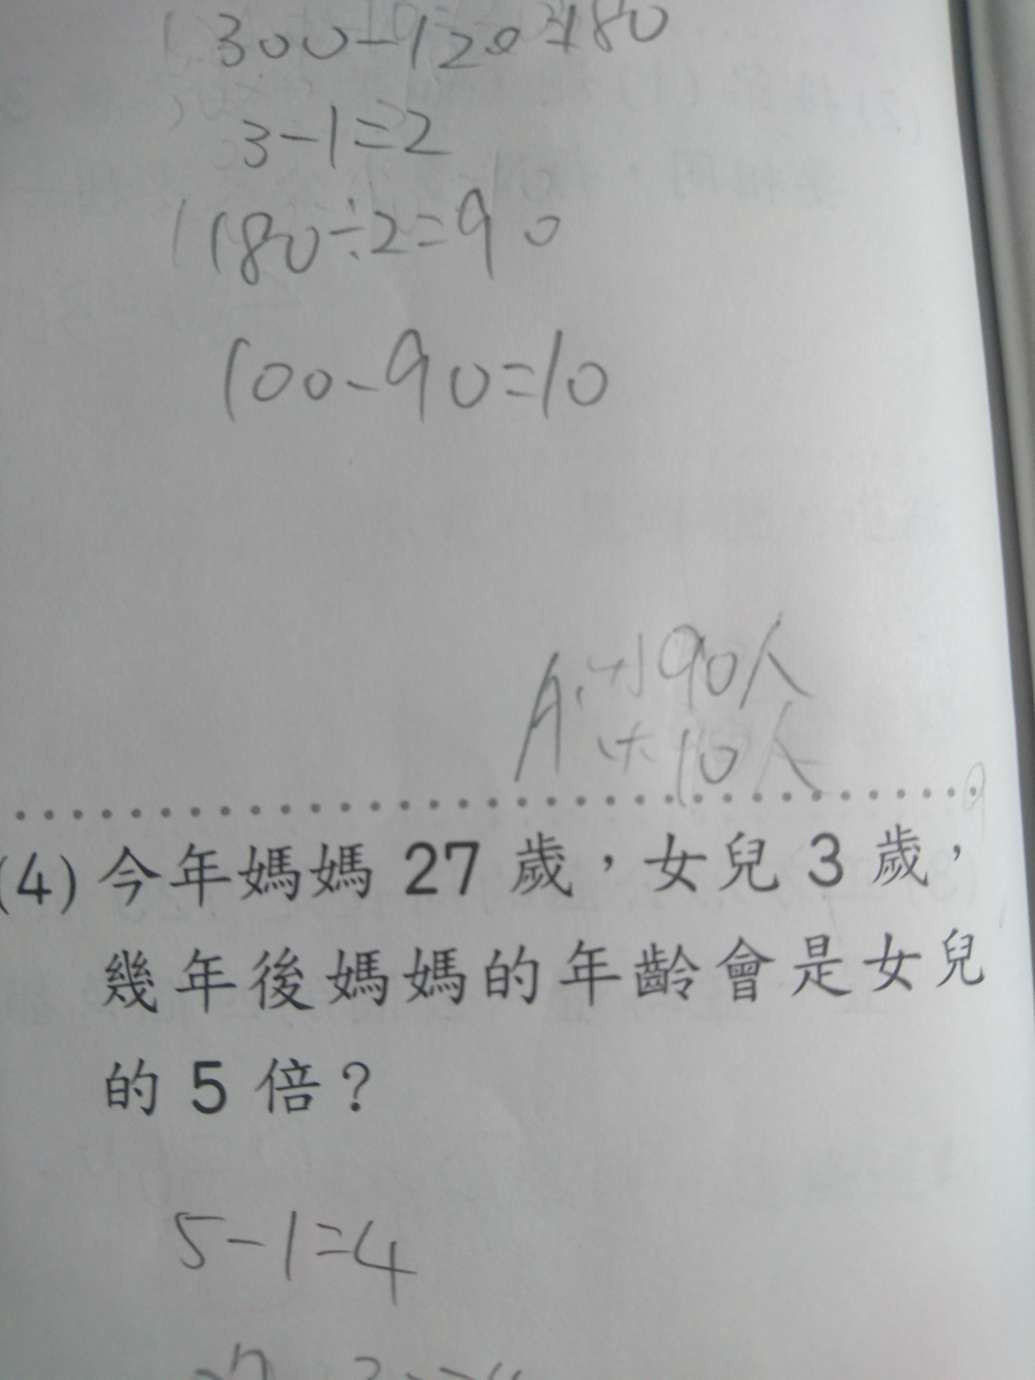 300-120=180
3-1=2
180÷2=90
100-90=10
A:小90人
大10人
(4)今年媽媽 27 歲，女兒 3 歲，
幾年後媽媽的年齡會是女兒
的 5 倍？
5-1=4